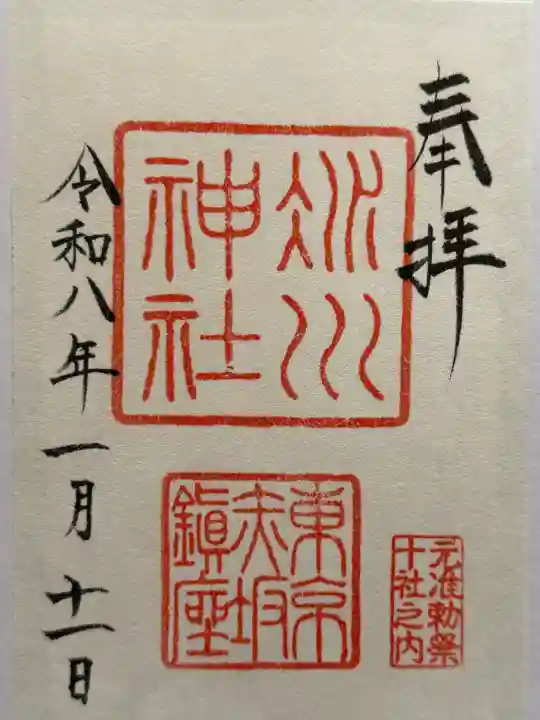 奉拝
氷川
神社
東京
赤坂
鎮座
元准勅祭
十社之内
令和八年一月十一日